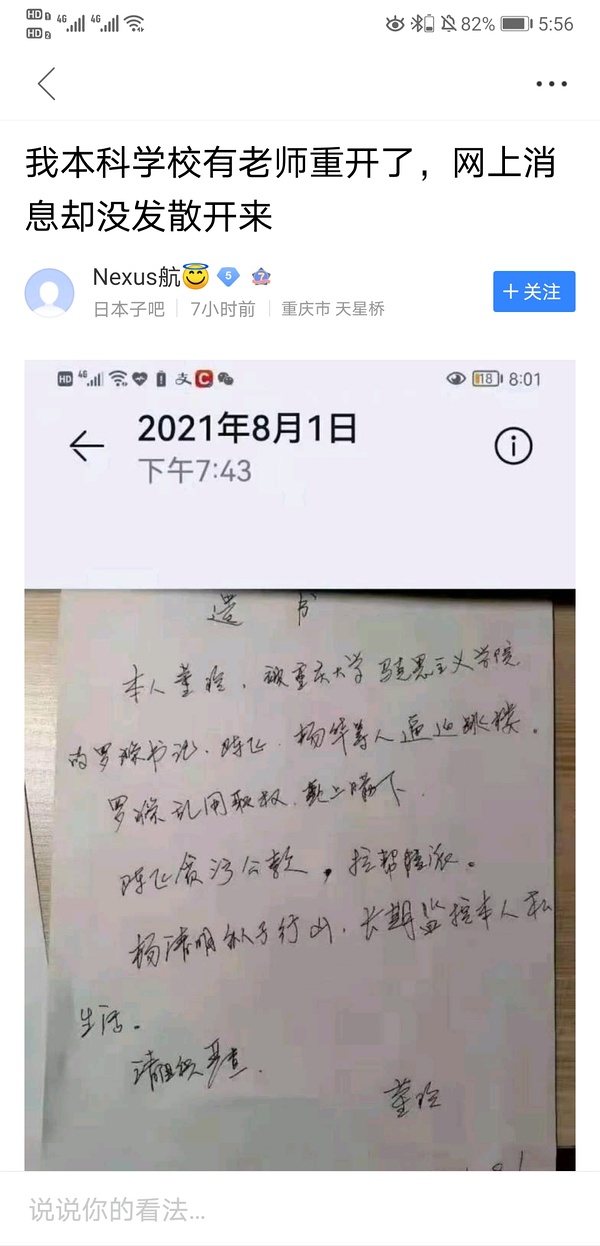 HD 1 4G 4G 82% 5:56
HD 2
我本科学校有老师重开了，网上消
息却没发散开来
Nexus航 5 7
+ 关注
日本子吧 7小时前 重庆市 天星桥
HD 4G 支 C 18 8:01
2021年8月1日
下午7:43
遗 书
本人董 ，被重庆大学马克思主义学院
的罗 书记、陈飞、杨 等人逼迫跳楼。
罗 乱用职权、欺上瞒下
陈飞贪污公款，拉帮结派。
杨清明纵子行凶、长期监控本人私
生活。
请组织严查.
董
说说你的看法...